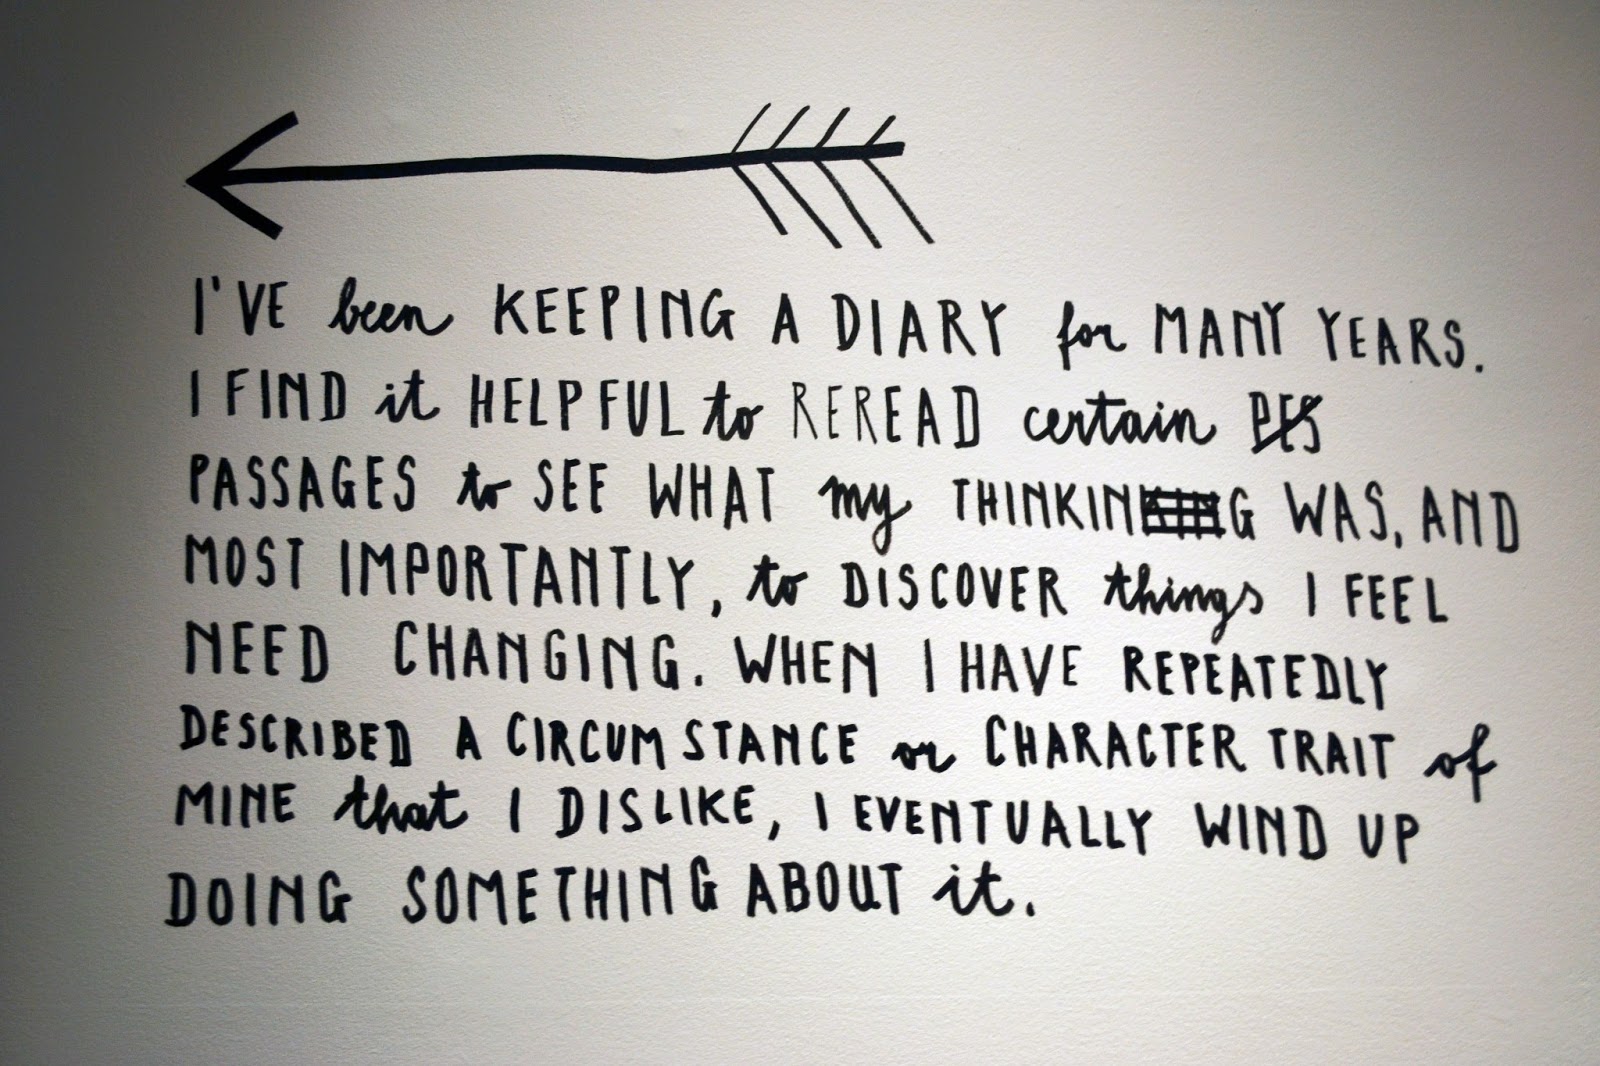 I'VE been KEEPING A DIARY for MANY YEARS.
I FIND it HELPFUL to REREAD certain
PASSAGES to SEE WHAT my THINKING WAS, AND
MOST IMPORTANTLY, to DISCOVER things I FEEL
NEED CHANGING. WHEN I HAVE REPEATEDLY
DESCRIBED A CIRCUMSTANCE or CHARACTER TRAIT of
MINE that I DISLIKE, I EVENTUALLY WIND UP
DOING SOMETHING ABOUT it.